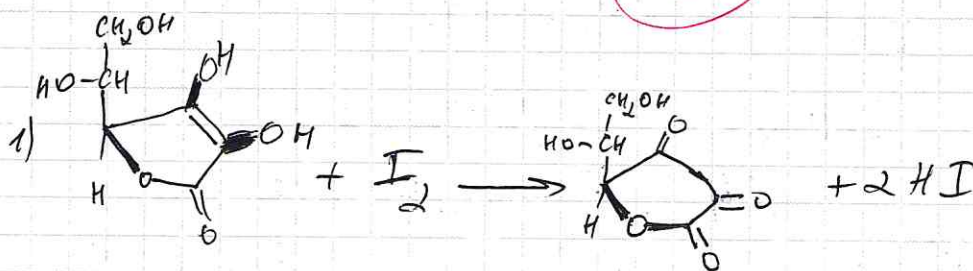 1)
CH₂OH
HO-CH
OH
OH
H
O
O
+ I₂ →
CH₂OH
HO-CH
O
O
H
O
O
+ 2 HI